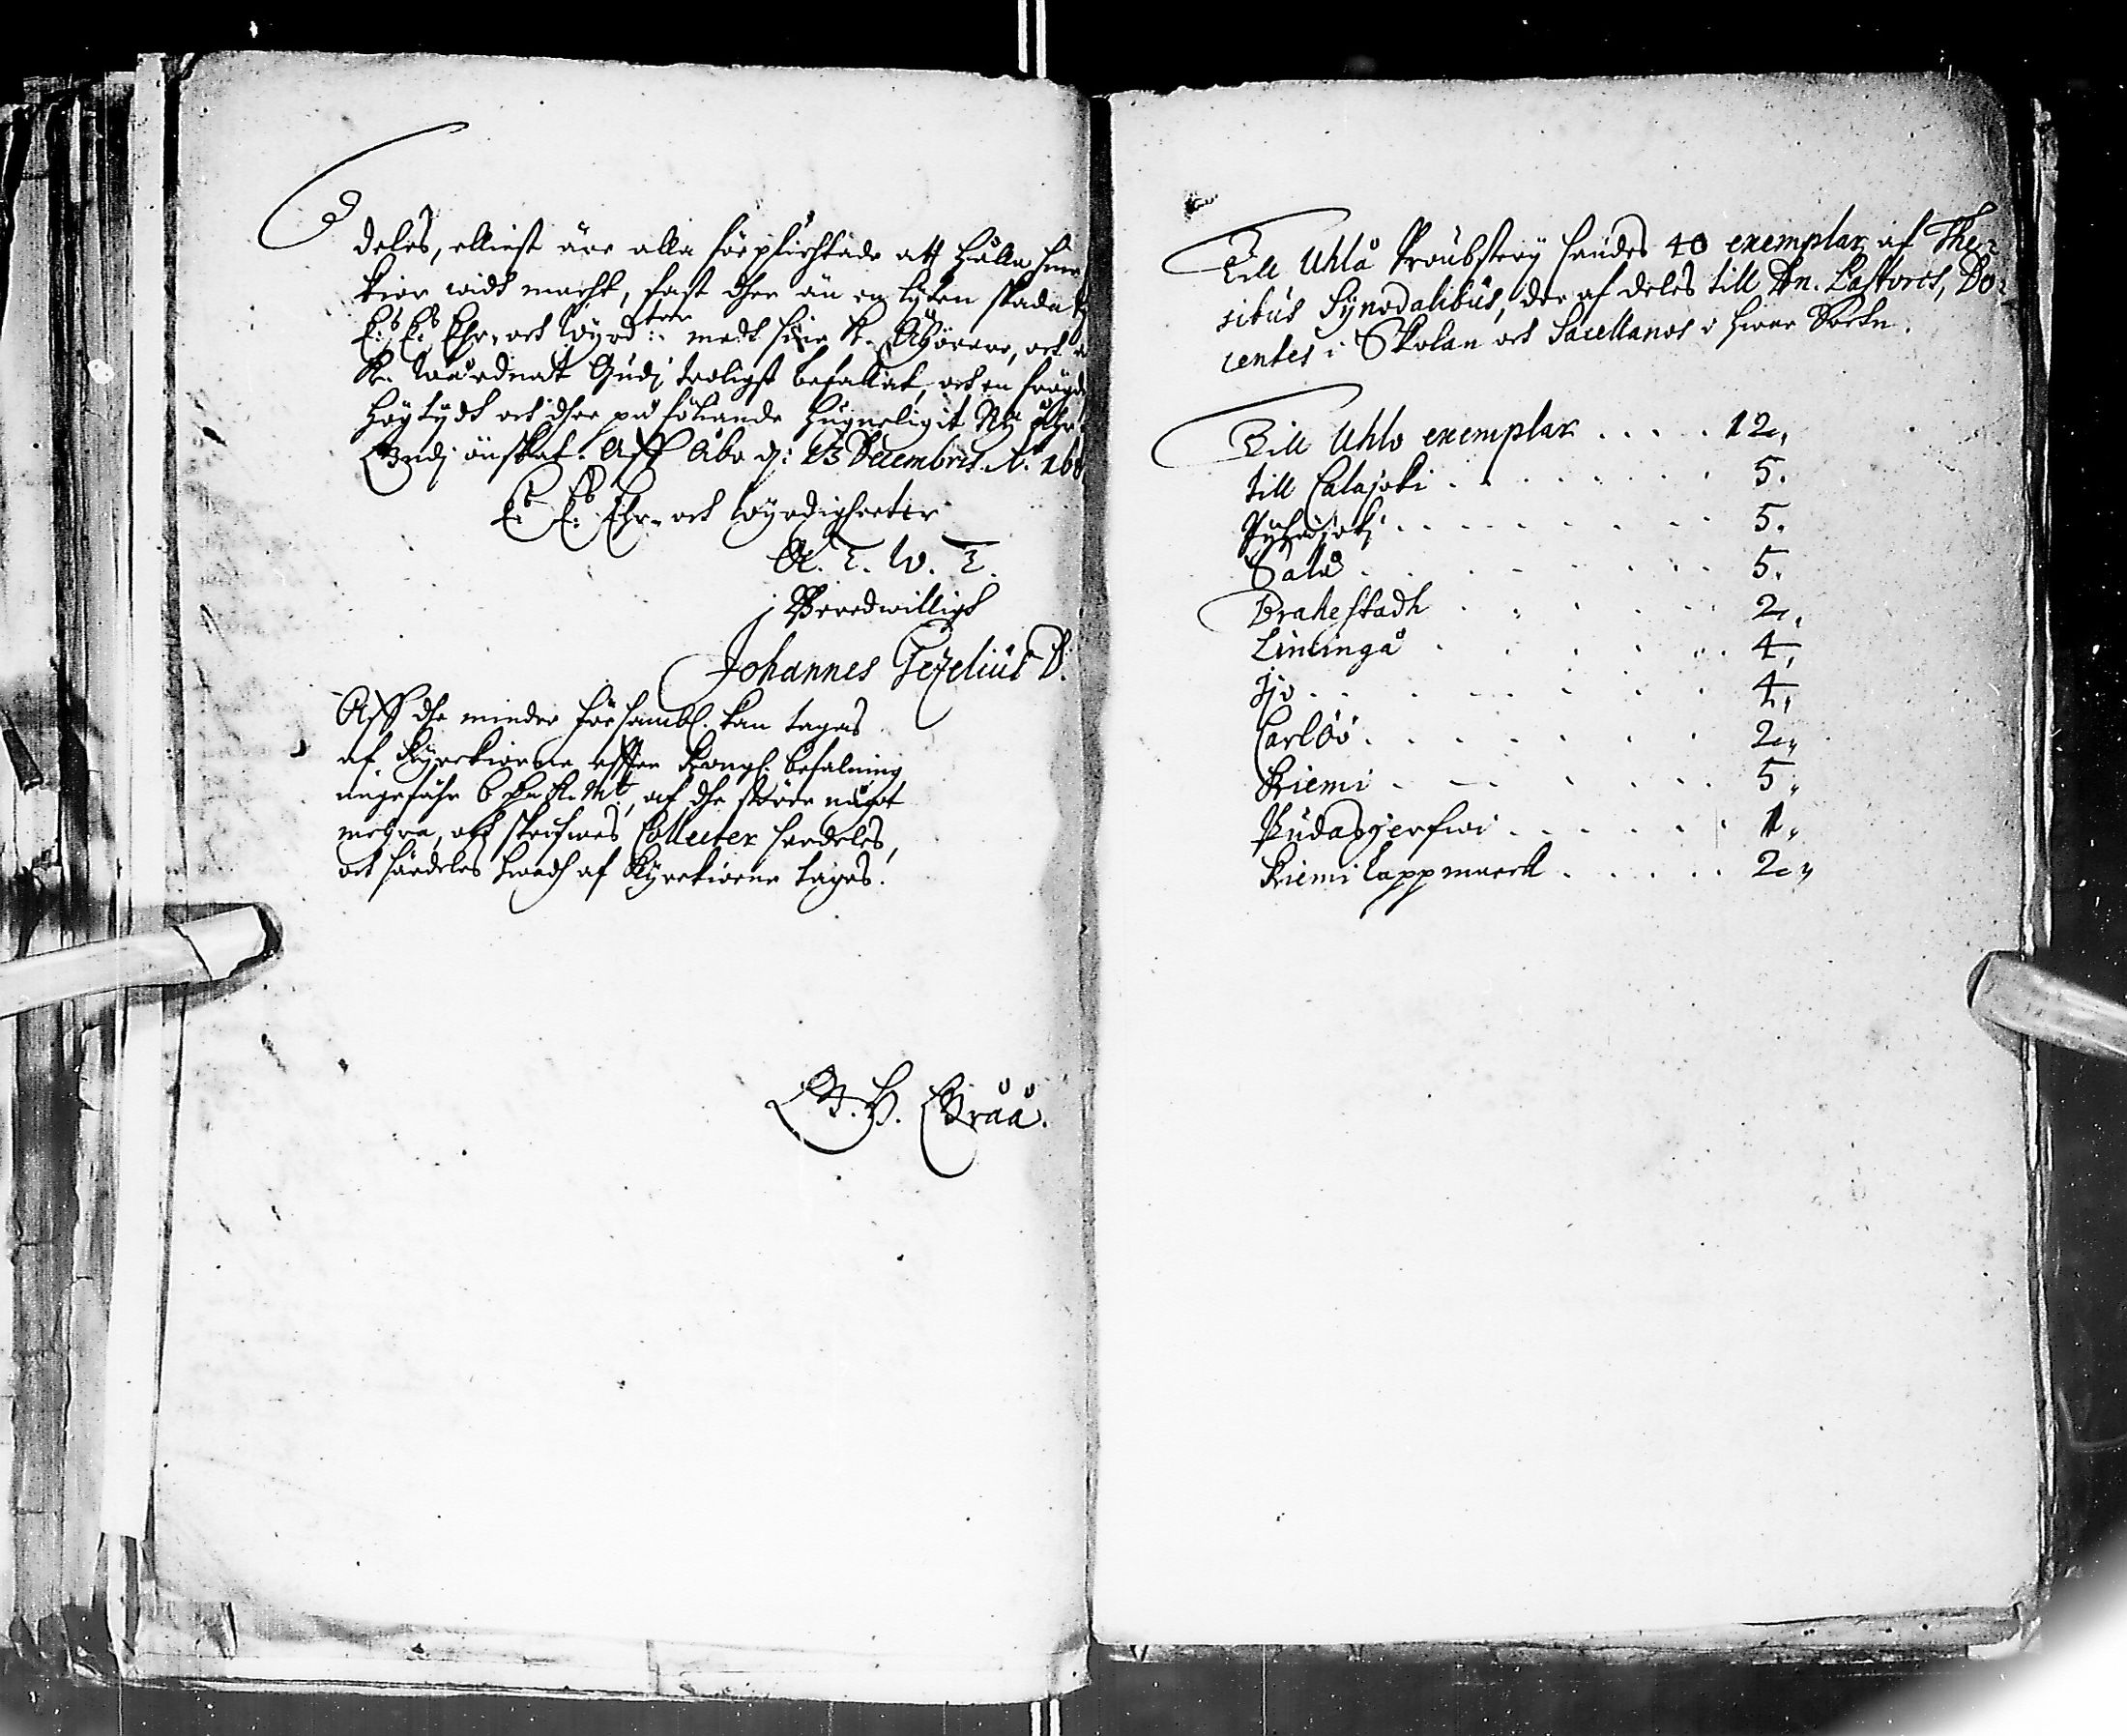 deles, elliest äre alla förplichtade att hålla sine
kior widh macht, fast dher än en lyten skada
E: E: Ehr- och Wyrd:ter medh sine k. Åhörare, och
k. wårdnat Gudj troligst befallat, och en frögde
högtydh och dher på fölliande hugneligit Nytt Åhr
Gudj önskat. Aff Åbo d: 13 Decembris. A:o 168
E: E: Ehr- och Wyrdigheeter
A. T. W. T.
Beredwilligh
Johannes Gezelius D.
Aff dhe mindre försambl. kan tagas
af Kyrckiorne effter Kongl. befalning
ungefähr 6 dr. K. Mt, af dhe större något
mehra, och skrifwes Collecter serdeles,
och särdeles hwadh af Kyrckiorne tages.
B. H. Bråå.
Till Uhlå Proubsterij sändes 40 exemplar af The-
sibus Synodalibus, der af deles till Dn. Pastores, Do-
centes i Skolan och Sacellanos i hwar Sochn.
Till Uhlo exemplar . . . . . 12,
till Calajoki . . . . . . . 5.
Pyhäjokj . . . . . . . . 5.
Salå . . . . . . . 5.
Brahestadh . . . . . . 2,
Limingå . . . . . . 4,
Ijo . . . . . . . . 4,
Carlöö . . . . . . . 2,
Kiemi . . . . . . . 5,
Pudasjerfwi . . . . . . 1,
Kiemi Lappmarck . . . . . 2,